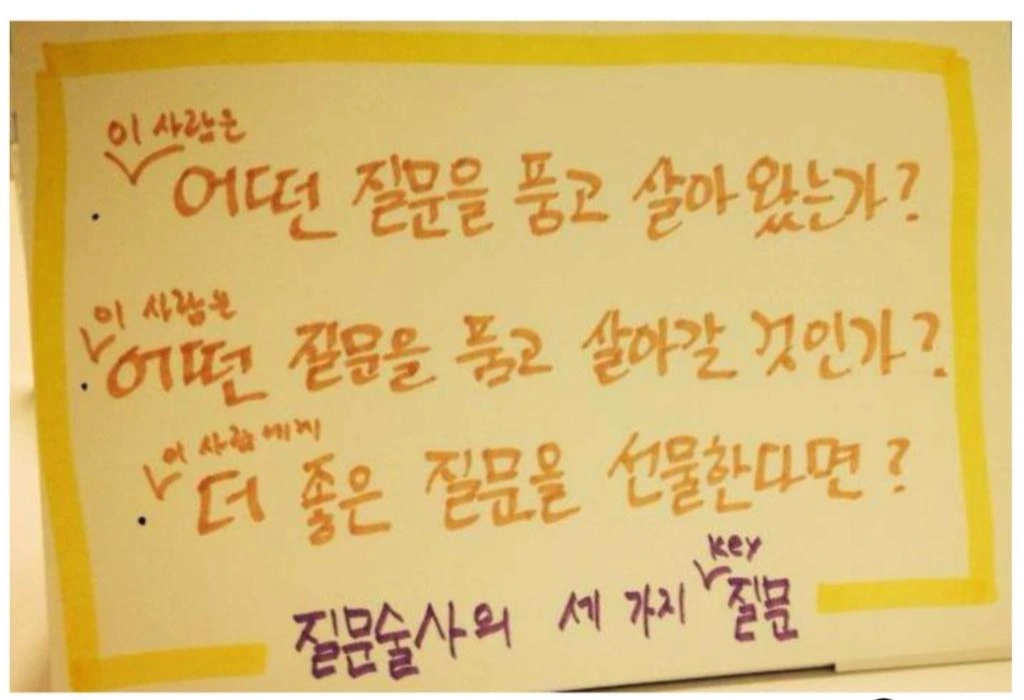 이 사람은
어떤 질문을 품고 살아 왔는가?
이 사람은
어떤 질문을 품고 살아갈 것인가?
이 사람에게
더 좋은 질문을 선물한다면?
key
질문술사의 세 가지 질문